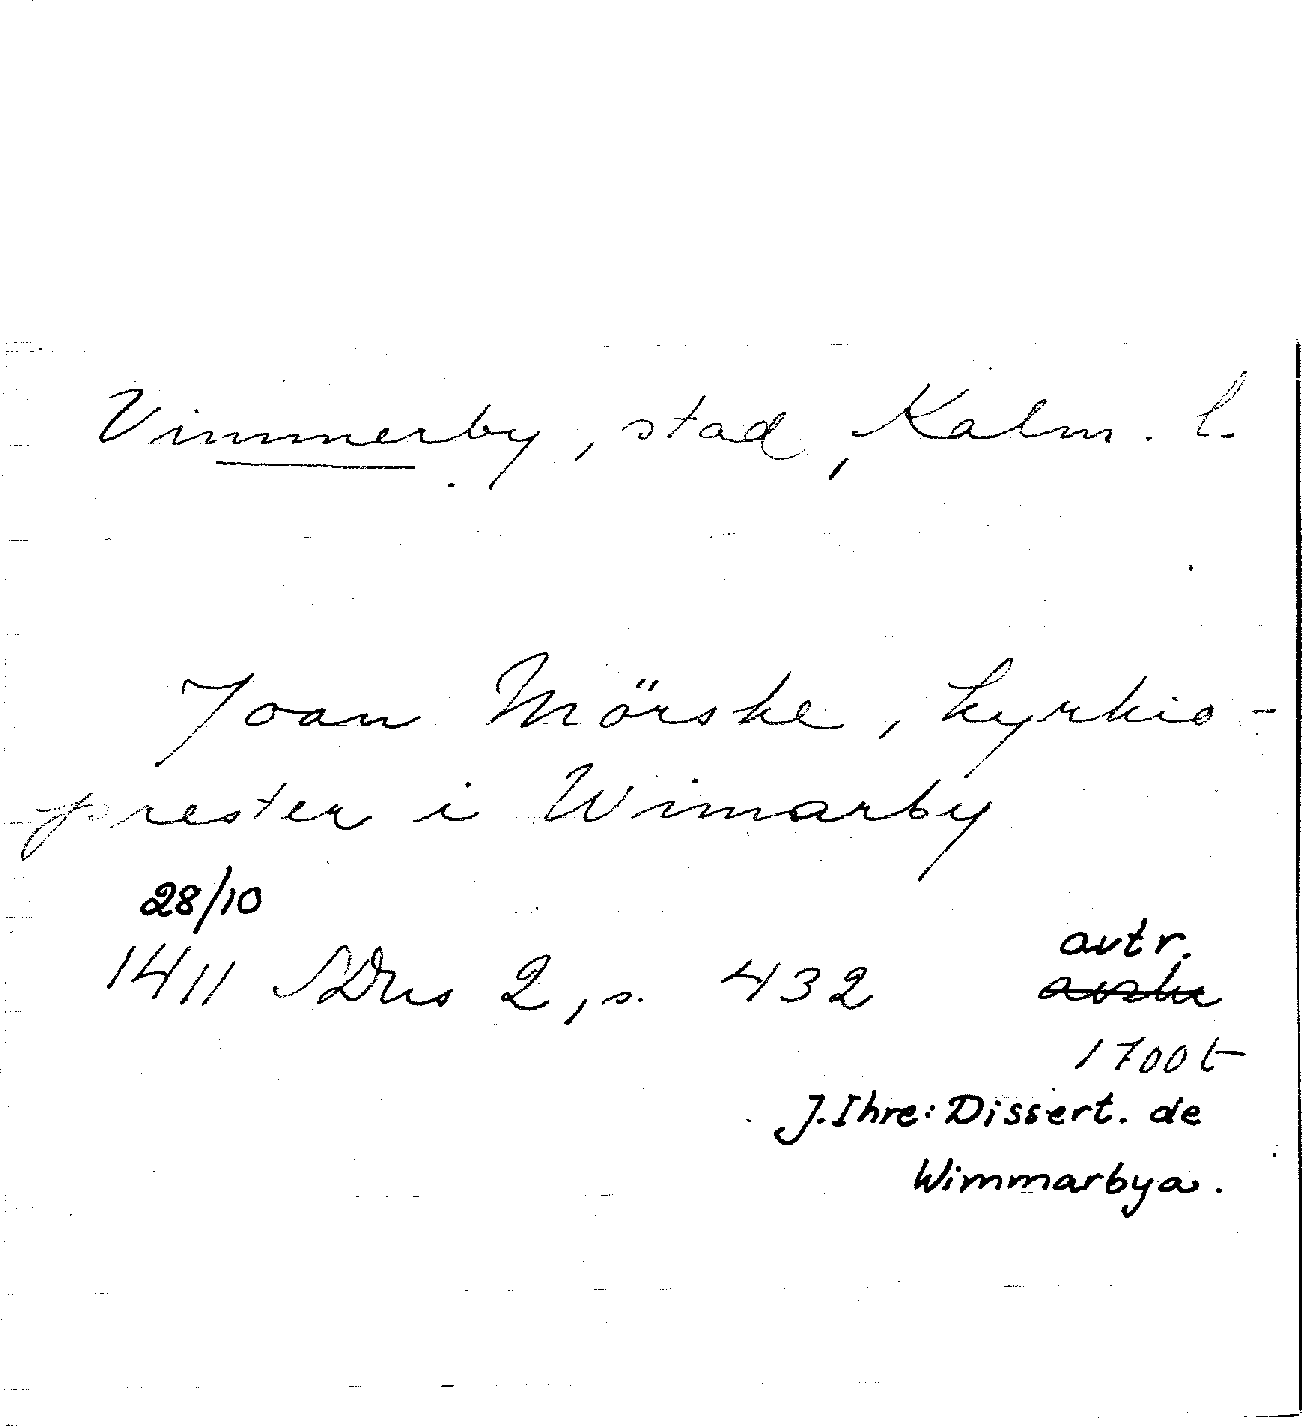 Vimmerby, stad, Kalm. l.
Joan Mörske, kyrkio-
prester i Wimarby
28/10
1411 SDns 2, s. 432 avtr.
avskr
1700t
J. Ihre: Dissert. de
Wimmarbya.